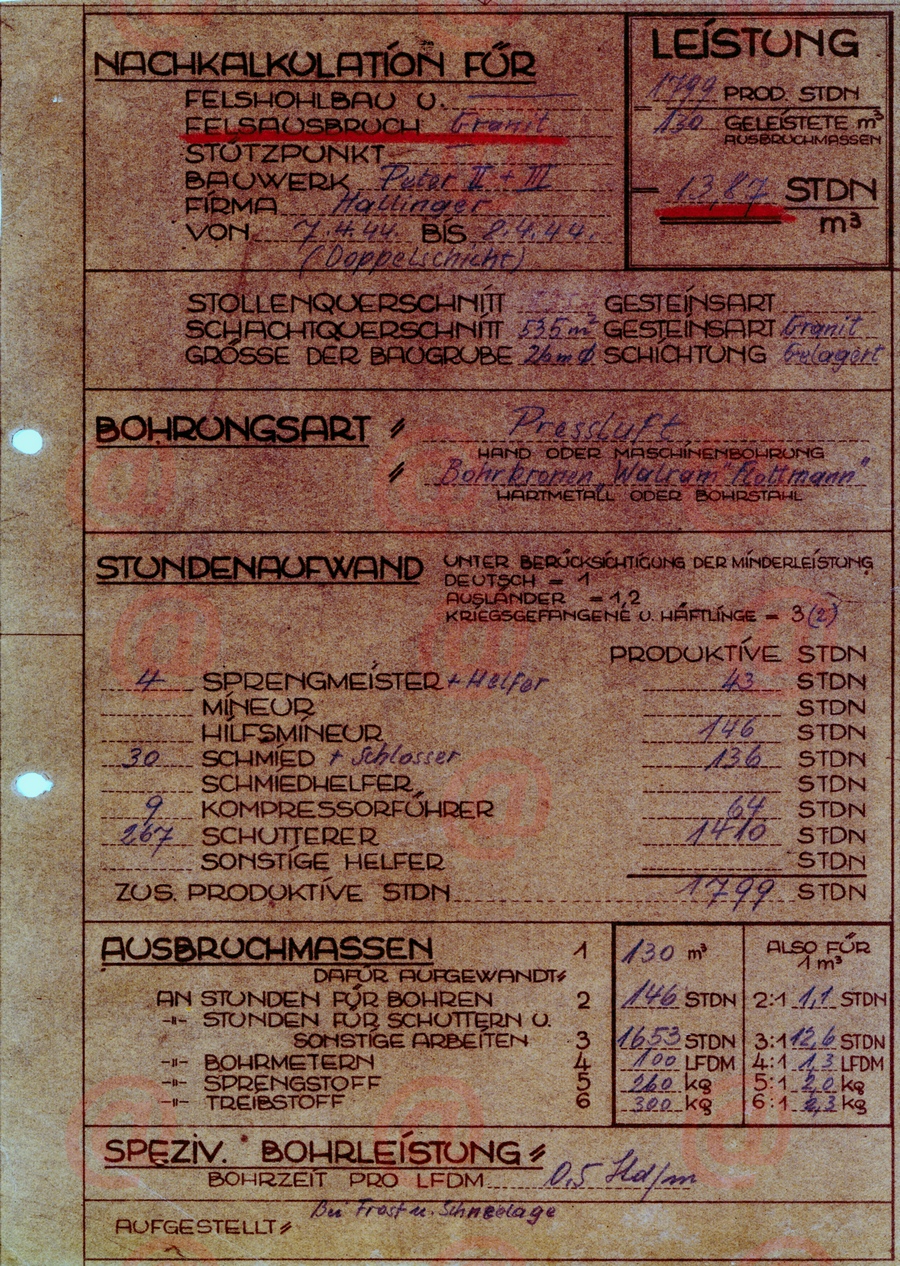 LEISTUNG
NACHKALKULATION FÜR
1799 PROD. STDN
FELSHOHLBAU U.
130 GELEISTETE m³
AUSBRUCHMASSEN
FELSAUSBRUCH Granit
STÜTZPUNKT
BAUWERK Peter II + III
13,87 STDN
m³
FIRMA Hallinger
VON 7.4.44. BIS 8.4.44.
(Doppelschicht)
STOLLENQUERSCHNITT GESTEINSART
SCHACHTQUERSCHNITT 535 m² GESTEINSART Granit
GRÖSSE DER BAUGRUBE 26m ϕ SCHICHTUNG Gelagert
BOHRUNGSART // Pressluft
HAND ODER MASCHINENBOHRUNG
// Bohrkronen „Walram" Flottmann"
HARTMETALL ODER BOHRSTAHL
STUNDENAUFWAND UNTER BERÜCKSICHTIGUNG DER MINDERLEISTUNG
DEUTSCH = 1
AUSLÄNDER = 1,2
KRIEGSGEFANGENE U. HÄFTLINGE = 3 (2)
PRODUKTIVE STDN
4 SPRENGMEISTER + Helfer 43 STDN
MINEUR STDN
HILFSMINEUR 146 STDN
30 SCHMIED + Schlosser 136 STDN
SCHMIEDHELFER STDN
9 KOMPRESSORFÜHRER 64 STDN
267 SCHUTTERER 1410 STDN
SONSTIGE HELFER STDN
ZUS. PRODUKTIVE STDN 1799 STDN
AUSBRUCHMASSEN 1 130 m³ ALSO FÜR
1 m³
DAFÜR AUFGEWANDT//
AN STUNDEN FÜR BOHREN 2 146 STDN 2:1 1,1 STDN
-"- STUNDEN FÜR SCHUTTERN U.
SONSTIGE ARBEITEN 3 1653 STDN 3:1 12,6 STDN
-"- BOHRMETERN 4 100 LFDM 4:1 1,3 LFDM
-"- SPRENGSTOFF 5 260 kg 5:1 2,0 kg
-"- TREIBSTOFF 6 300 kg 6:1 2,3 kg
SPEZIV. BOHRLEISTUNG //
BOHRZEIT PRO LFDM 0,5 Std/m
Bei Frost u. Schneelage
AUFGESTELLT//